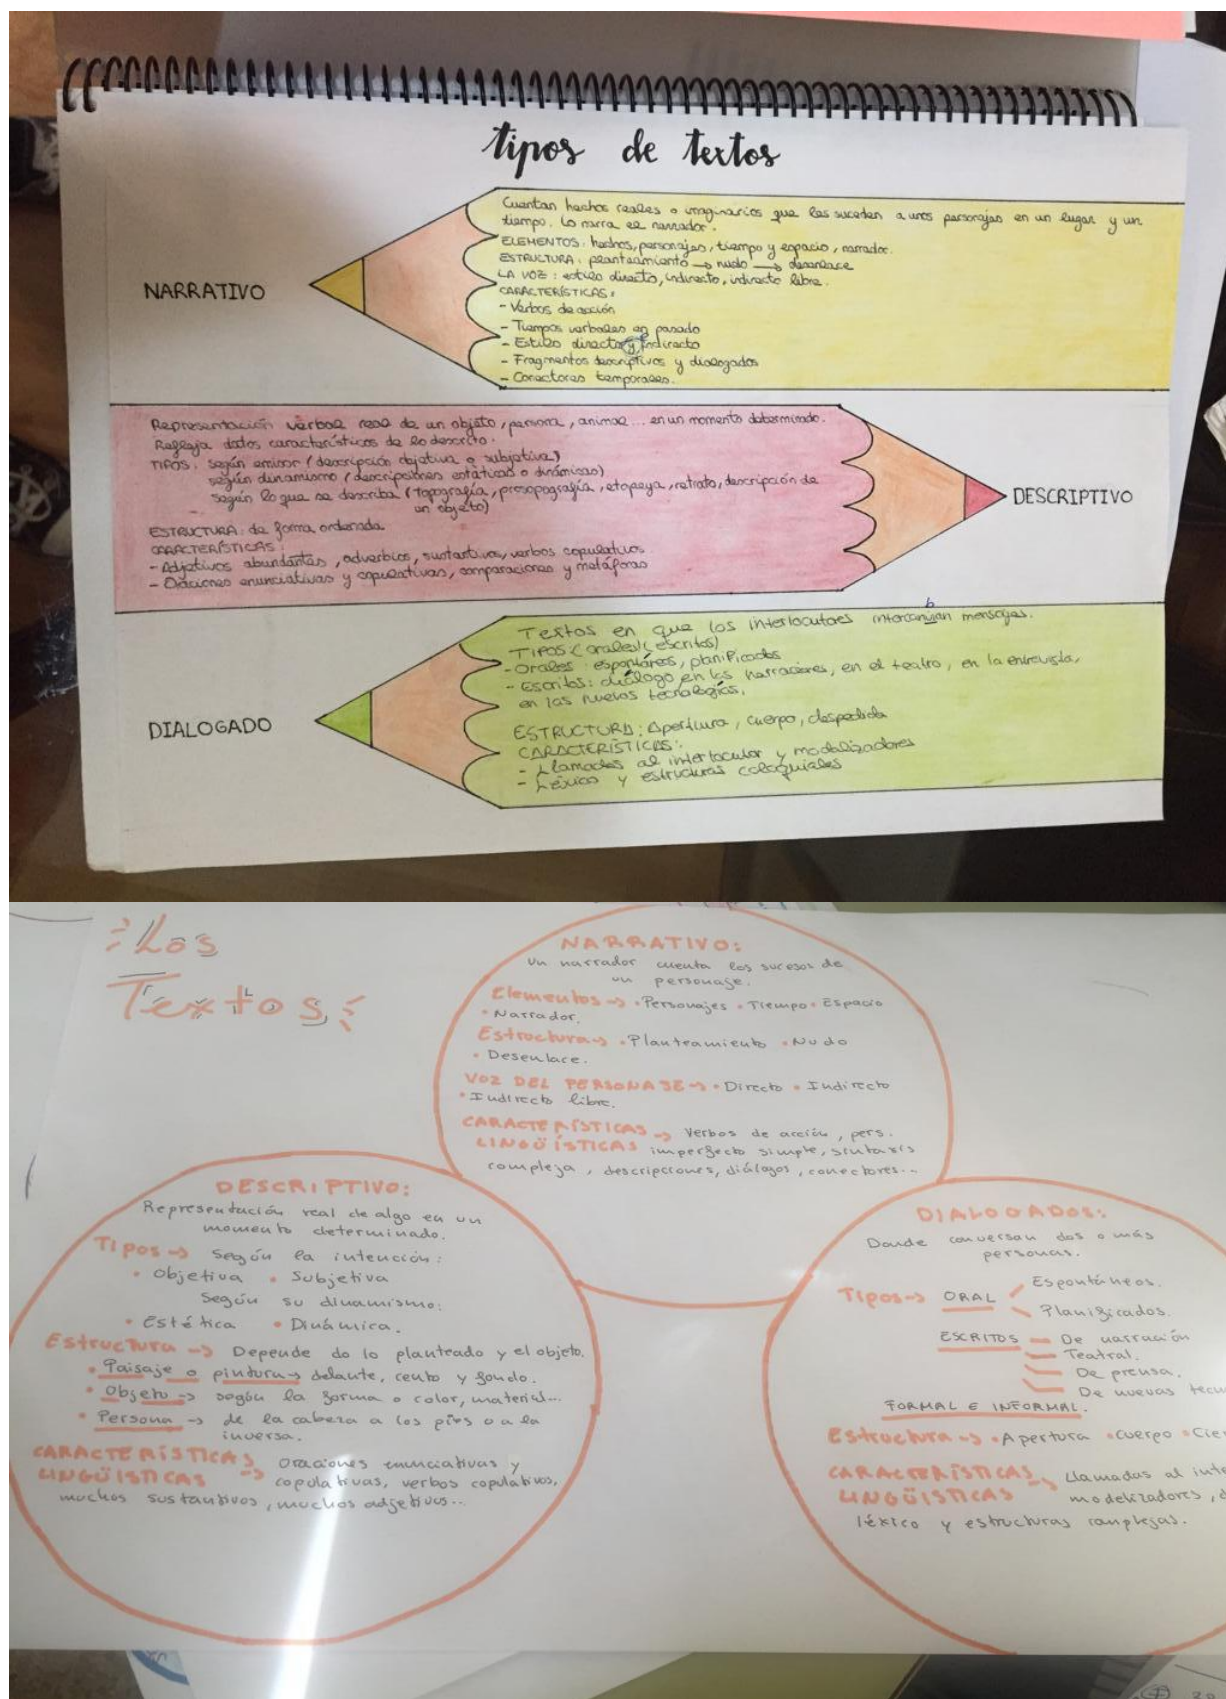 tipos de textos
NARRATIVO
Cuentan hechos reales o imaginarios que les suceden a unos personajes en un lugar y un
tiempo. Lo narra el narrador.
ELEMENTOS: hechos, personajes, tiempo y espacio, narrador.
ESTRUCTURA: planteamiento → nudo → desenlace
LA VOZ: estilo directo, indirecto, indirecto libre.
CARACTERÍSTICAS:
- Verbos de acción
- Tiempos verbales en pasado
- Estilo directo y indirecto
- Fragmentos descriptivos y dialogados
- Conectores temporales.
Representación verbal real de un objeto, persona, animal... en un momento determinado.
Refleja datos característicos de lo descrito.
TIPOS: según emisor (descripción objetiva o subjetiva)
según dinamismo (descripciones estáticas o dinámicas)
según lo que se describa (topografía, prosopografía, etopeya, retrato, descripción de
un objeto)
ESTRUCTURA: de forma ordenada
CARACTERÍSTICAS:
- Adjetivos abundantes, adverbios, sustantivos, verbos copulativos
- Oraciones enunciativas y copulativas, comparaciones y metáforas
DESCRIPTIVO
DIALOGADO
Textos en que los interlocutores intercambian mensajes.
TIPOS: (orales) (escritos)
- Orales: espontáneos, planificados
- Escritos: diálogo en las narraciones, en el teatro, en la entrevista,
en las nuevas tecnologías.
ESTRUCTURA: Apertura, cuerpo, despedida
CARACTERÍSTICAS:
- Llamadas al interlocutor y modalizadores
- Léxico y estructuras coloquiales
Los
Textos
NARRATIVO:
Un narrador cuenta los sucesos de
un personaje.
Elementos → • Personajes • Tiempo • Espacio
• Narrador.
Estructura → • Planteamiento • Nudo
• Desenlace.
VOZ DEL PERSONAJE → • Directo • Indirecto
• Indirecto libre.
CARACTERÍSTICAS
LINGÜÍSTICAS → Verbos de acción, pers.
imperfecto simple, sintaxis
compleja, descripciones, diálogos, conectores...
DESCRIPTIVO:
Representación real de algo en un
momento determinado.
Tipos → Según la intención:
• Objetiva • Subjetiva
Según su dinamismo:
• Estética • Dinámica.
Estructura → Depende do lo planteado y el objeto.
• Paisaje o pintura → delante, cento y fondo.
• Objeto → según la forma o color, material...
• Persona → de la cabeza a los pies o a la
inversa.
CARACTERÍSTICAS
LINGÜISTICAS → Oraciones enunciativas y
copulativas, verbos copulativos,
muchos sustantivos, muchos adjetivos...
DIALOGADOS:
Donde conversan dos o más
personas.
Tipos → ORAL Espontáneos.
Planificados.
ESCRITOS De narración
Teatral.
De prensa.
De nuevas tecn
FORMAL E INFORMAL.
Estructura → • Apertura • Cuerpo • Cier
CARACTERÍSTICAS
LINGÜISTICAS → Llamadas al inte
modelizadores, d
léxico y estructuras complejas.